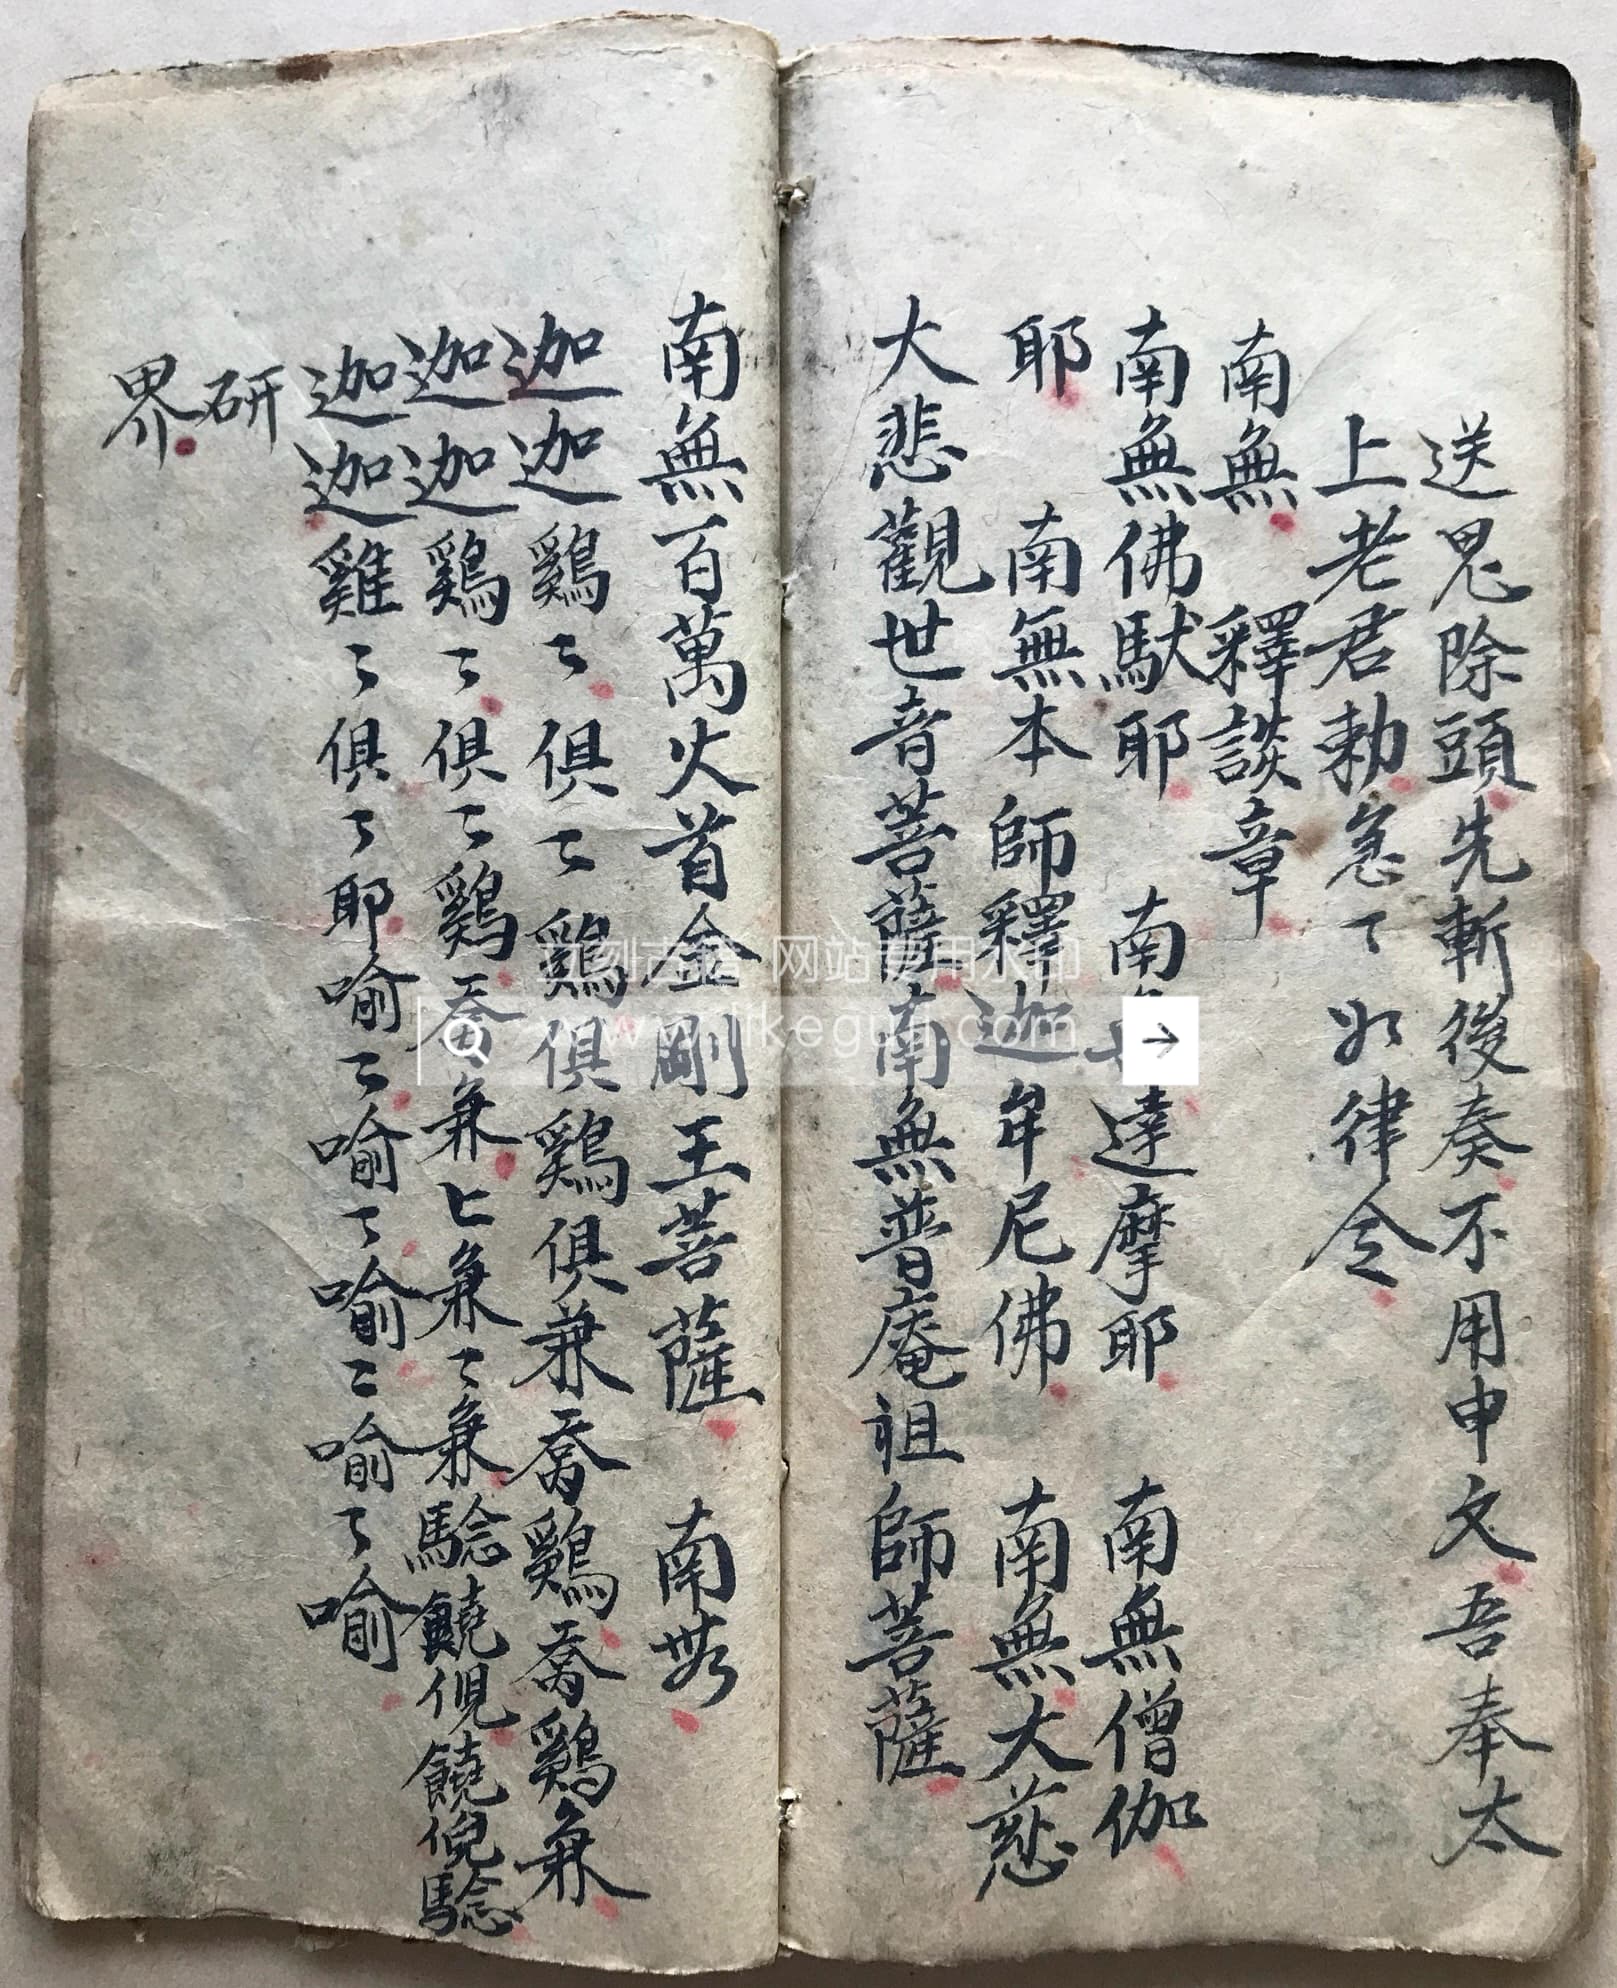 送鬼除頭先斬後奏不用申文吾奉太
上老君勅急〻如律令
南無　釋談章
南無佛馱耶　南無達摩耶　南無僧伽
耶　南無本師釋迦牟尼佛　南無大慈
大悲觀世音菩薩南無普庵祖師菩薩
南無百萬火首金剛王菩薩　南無
迦迦鷄〻俱〻鷄俱鷄俱兼喬鷄喬鷄兼
迦迦鷄〻俱〻鷄喬兼〻兼〻兼驗饒倪饒倪驗
迦迦雞〻俱〻耶喻〻喻〻喻〻喻〻喻
研
界
www.likeguji.com